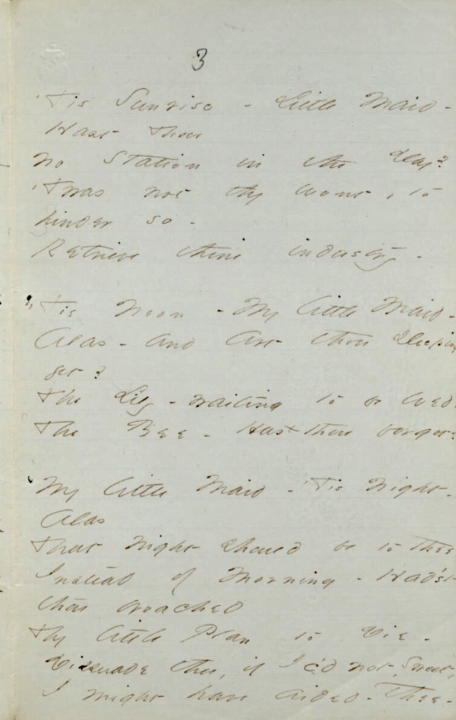 3
'Tis Sunrise - Little Maid -
Hast Thou
No Station in the Day?
'Twas not thy wont, to
hinder so -
Retrieve thine industry -
'Tis Noon - My little Maid -
Alas - and art thou sleeping
yet?
The Lily - waiting to be Wed -
The Bee - Hast thou forgot?
My little Maid - 'Tis Night -
Alas
That Night should be to thee
Instead of Morning - Had'st
thou broached
Thy little Plan to Die -
Dissuade thee, if I c'd not, Sweet,
I might have aided - Thee -